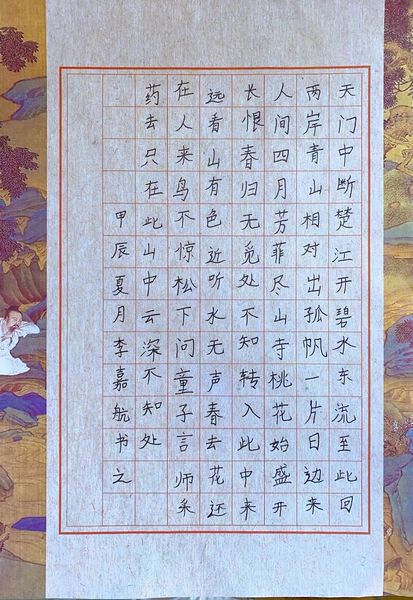 天门中断楚江开碧水东流至此回
两岸青山相对出孤帆一片日边来
人间四月芳菲尽山寺桃花始盛开
长恨春归无觅处不知转入此中来
远看山有色近听水无声春去花还
在人来鸟不惊松下问童子言师采
药去只在此山中云深不知处
甲辰夏月李嘉航书之